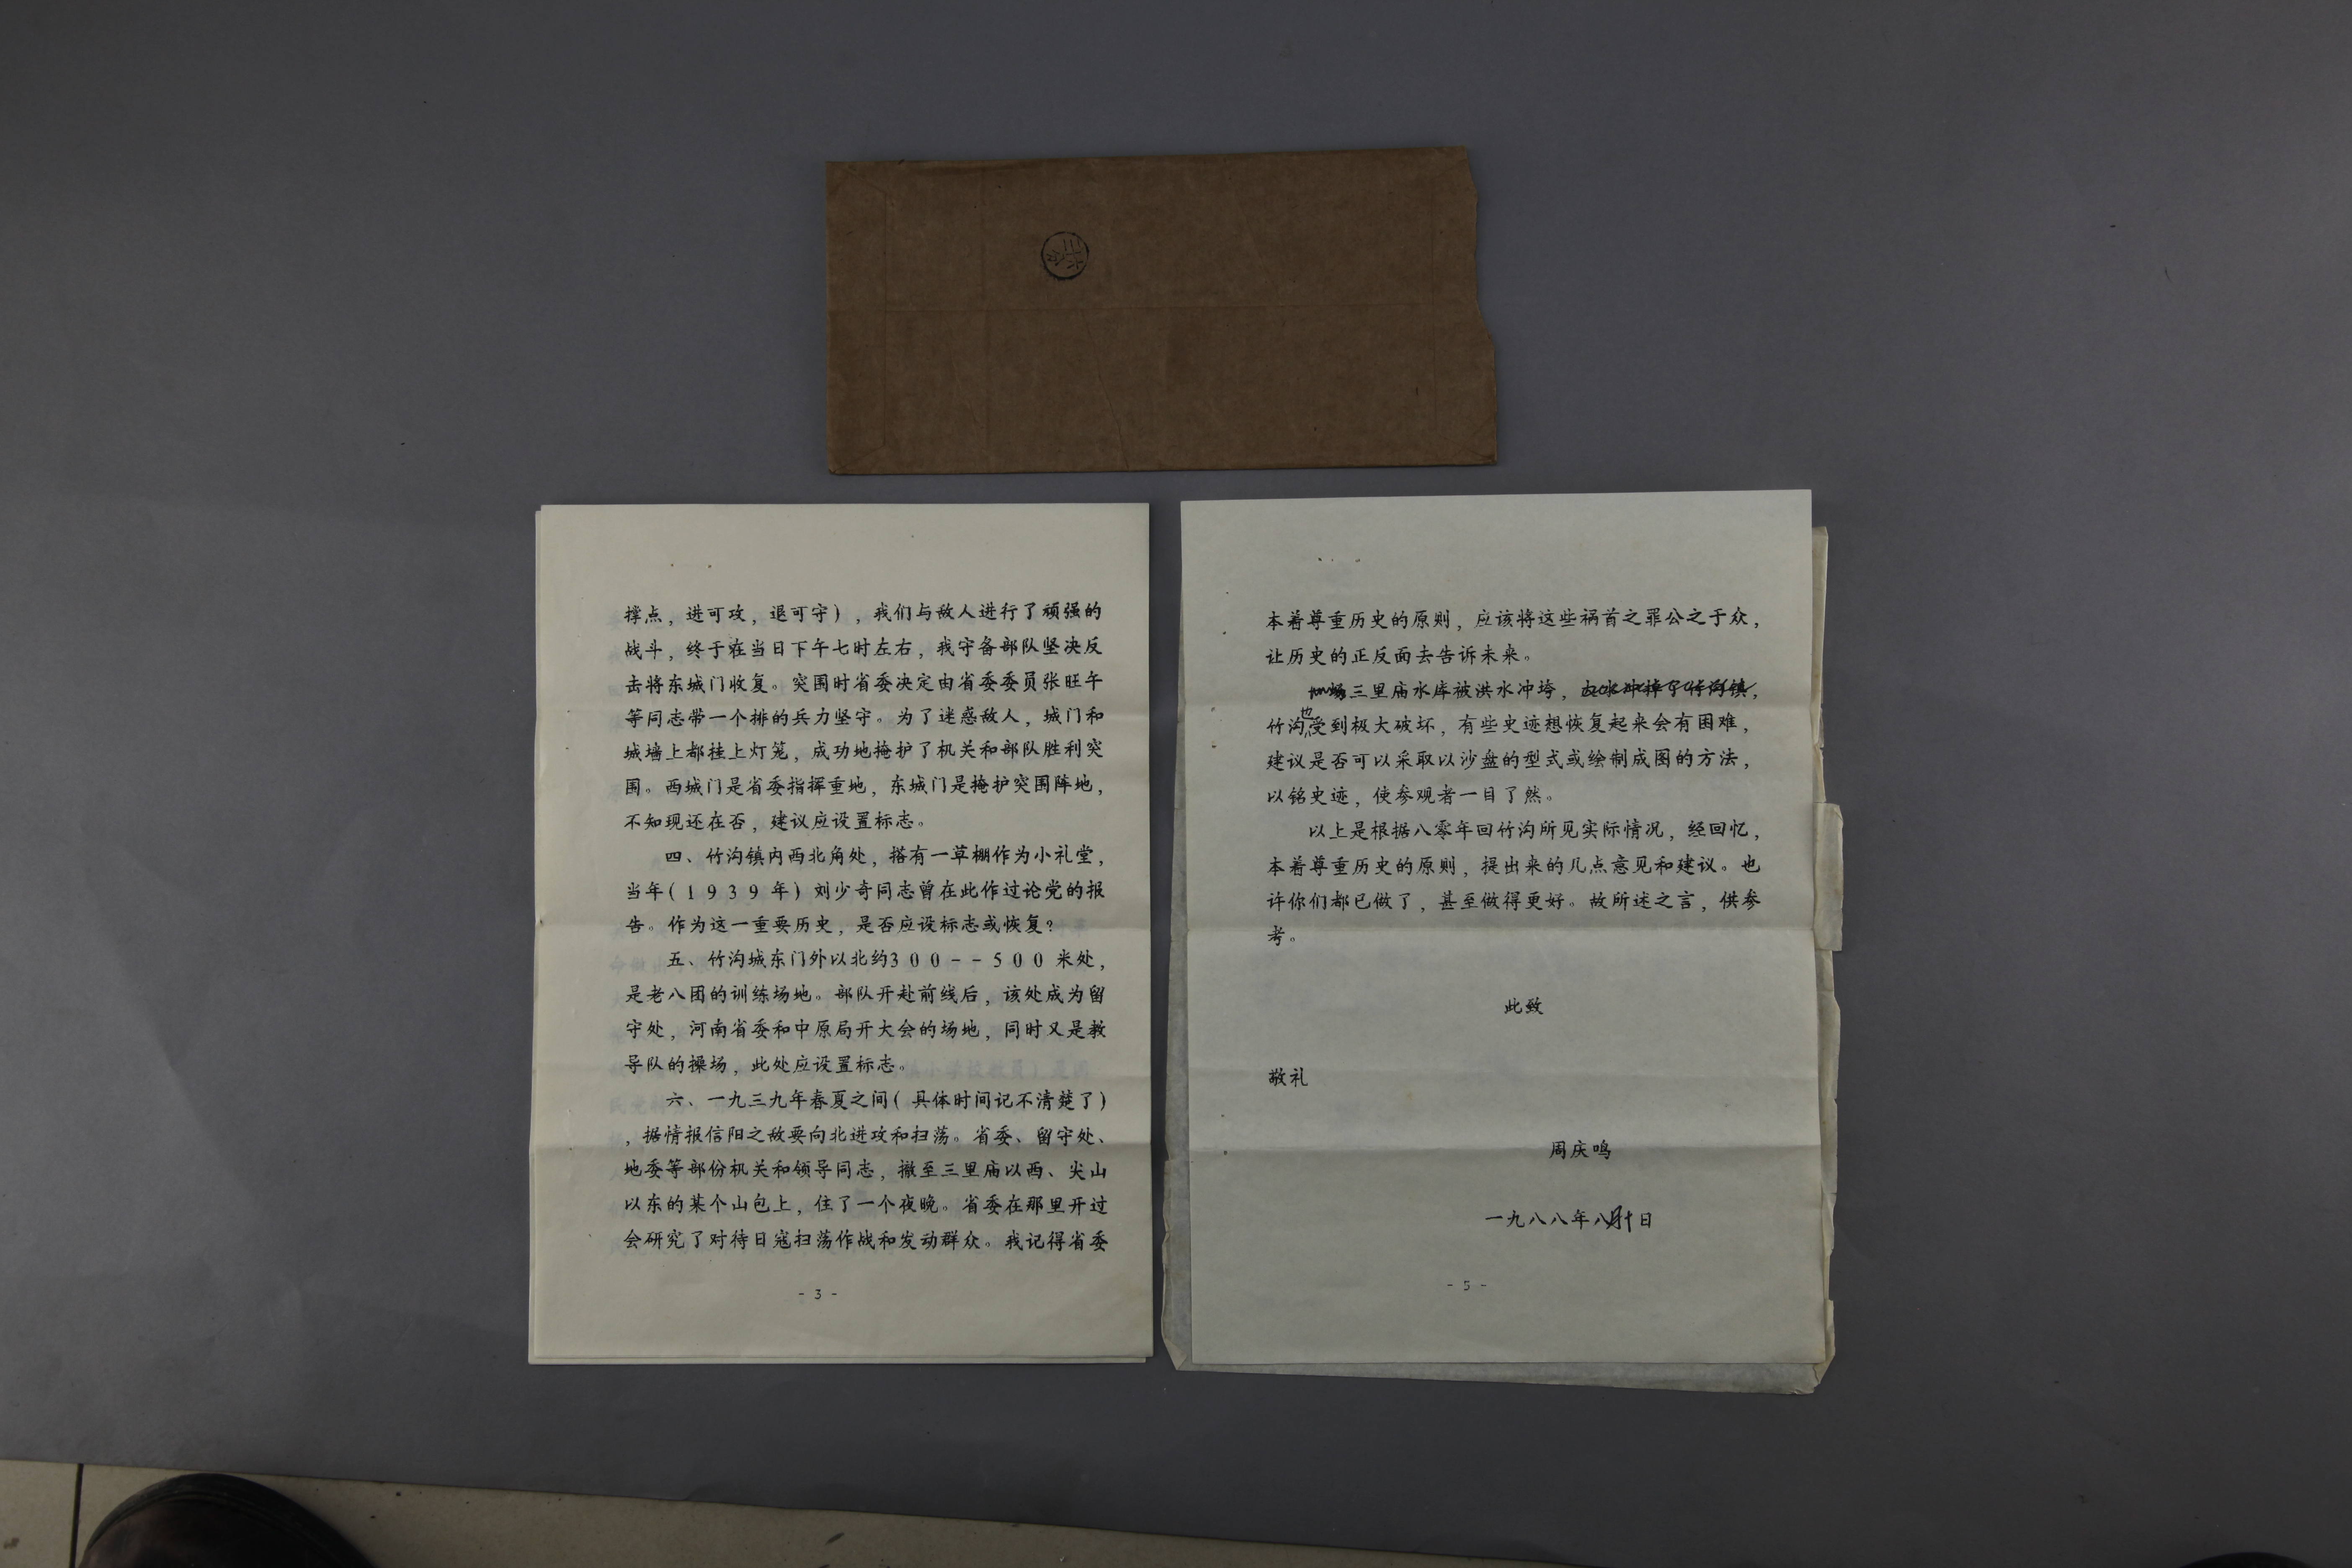 撑点，进可攻，退可守），我们与敌人进行了顽强的
战斗，终于在当日下午七时左右，我守备部队坚决反
击将东城门收复。突围时省委决定由省委委员张旺午
等同志带一个排的兵力坚守。为了迷惑敌人，城门和
城墙上都挂上灯笼，成功地掩护了机关和部队胜利突
围。西城门是省委指挥重地，东城门是掩护突围阵地，
不知现还在否，建议应设置标志。
四、竹沟镇内西北角处，搭有一草棚作为小礼堂，
当年（1939年）刘少奇同志曾在此作过论党的报
告。作为这一重要历史，是否应设标志或恢复？
五、竹沟城东门外以北约300--500米处，
是老八团的训练场地。部队开赴前线后，该处成为留
守处，河南省委和中原局开大会的场地，同时又是教
导队的操场，此处应设置标志。
六、一九三九年春夏之间（具体时间记不清楚了）
，据情报信阳之敌要向北进攻和扫荡。省委、留守处、
地委等部份机关和领导同志，撤至三里庙以西、尖山
以东的某个山包上，住了一个夜晚。省委在那里开过
会研究了对待日寇扫荡作战和发动群众。我记得省委
- 3 -
本着尊重历史的原则，应该将这些祸首之罪公之于众，
让历史的正反面去告诉未来。
三里庙水库被洪水冲垮，
竹沟也受到极大破坏，有些史迹想恢复起来会有困难，
建议是否可以采取以沙盘的型式或绘制成图的方法，
以铭史迹，使参观者一目了然。
以上是根据八零年回竹沟所见实际情况，经回忆，
本着尊重历史的原则，提出来的几点意见和建议。也
许你们都已做了，甚至做得更好。故所述之言，供参
考。
此致
敬礼
周庆鸣
一九八八年八月十日
- 5 -